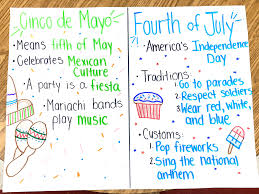 Cinco de Mayo
• Means fifth of May
• Celebrates Mexican
Culture
• A party is a fiesta
• Mariachi bands
play music
Fourth of July
• America's Independence
Day
• Traditions:
1 Go to parades
2 Respect soldiers
3 Wear red, white,
and blue
• Customs:
1 Pop fireworks
2 Sing the national
anthem